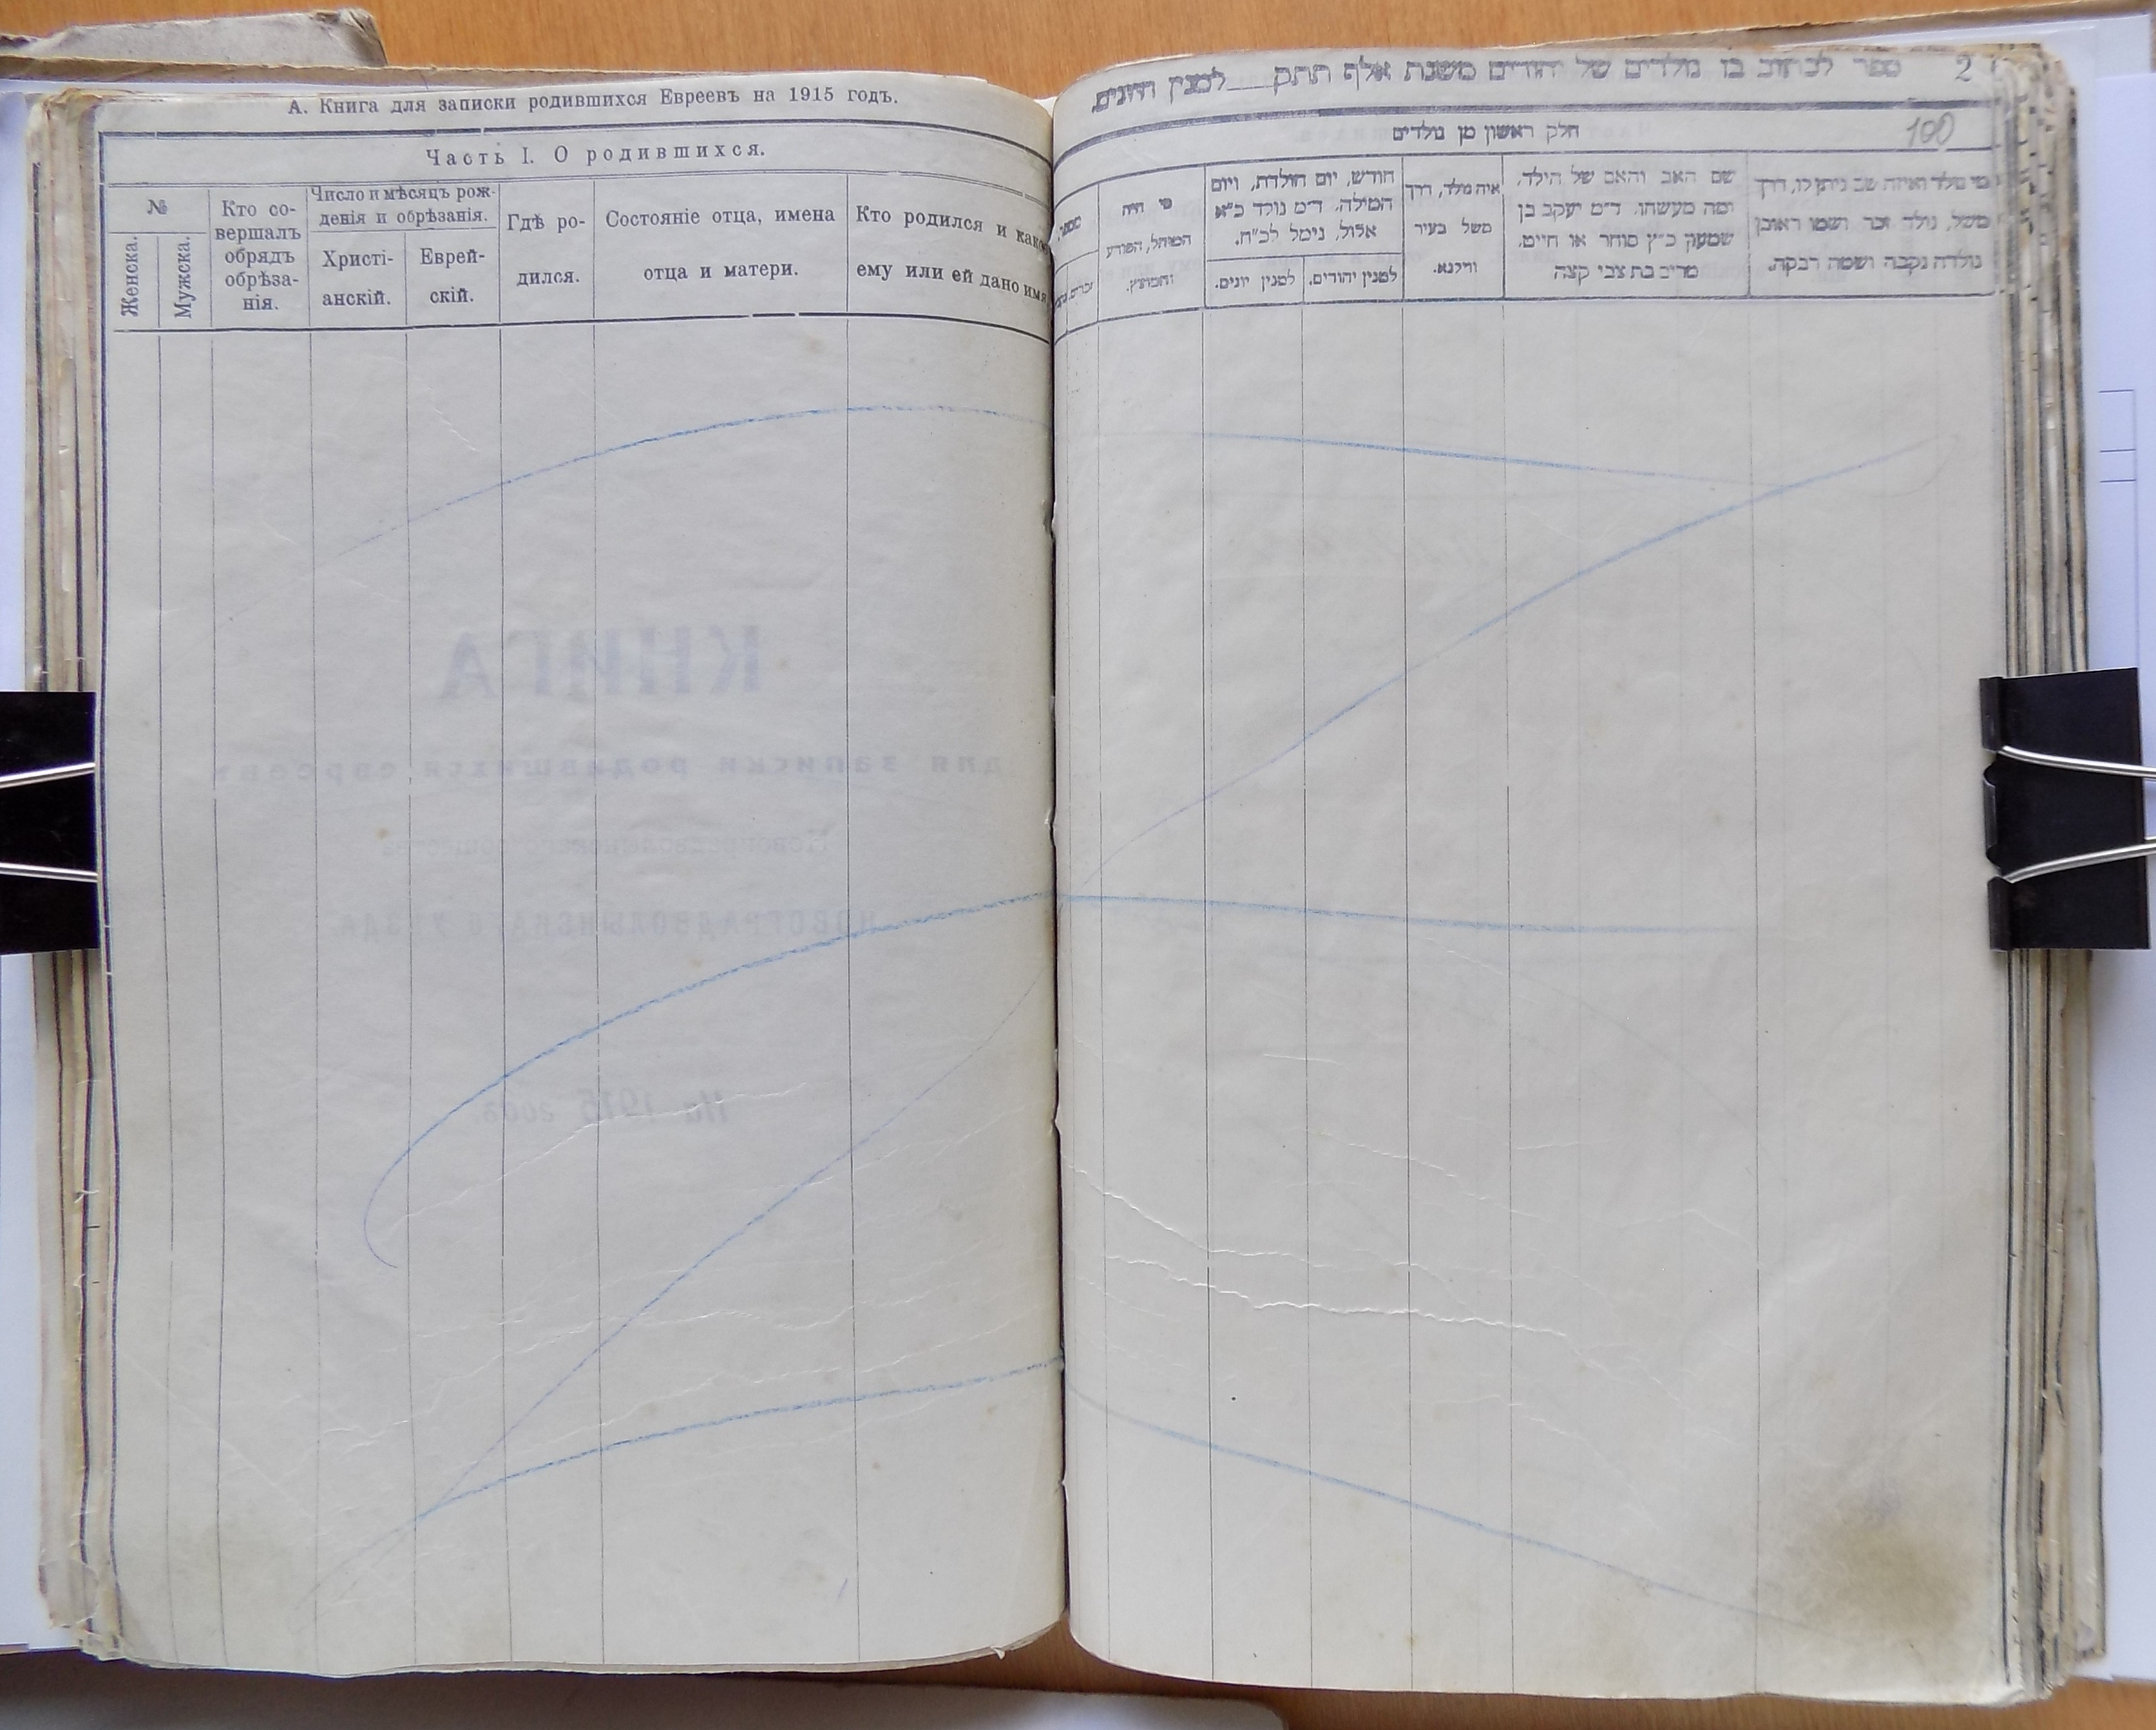 А. Книга для записки родившихся Евреевъ на 1915 годъ.
Часть I. О родившихся.
№
Женска.
Мужска.
Кто со-
вершалъ
обрядъ
обрѣза-
нія.
Число и мѣсяцъ рож-
денія и обрѣзанія.
Христі-
анскій.
Еврей-
скій.
Гдѣ ро-
дился.
Состояніе отца, имена
отца и матери.
Кто родился и какое
ему или ей дано имя
КНИГА
для записки родившихся евреевъ
НОВОГРАДВОЛЫНСКА
УѢЗДА
На 1915 годъ.
ספר לכתוב בו נולדים של יהודים משנת אלף תתק__למנין
2
חלק ראשון מן נולדים
100
מספר
מי היה
המוהל, הפורע
והמוצץ.
חודש, יום הולדת, ויום
המילה. ד״מ נולד כ״א
אלול, נימל לכ״ח.
למנין יהודים.
למנין יונים.
איה נולד, דרך
משל בעיר
ווילנא.
שם האב והאם של הילד,
ומה מעשהו. ד״מ יעקב בן
שמעון כ״ץ סוחר או חייט,
מרים בת צבי קצה
מי נולד ואיזה שם ניתן לו, דרך
משל, נולד זכר ושמו ראובן
נולדה נקבה ושמה רבקה.